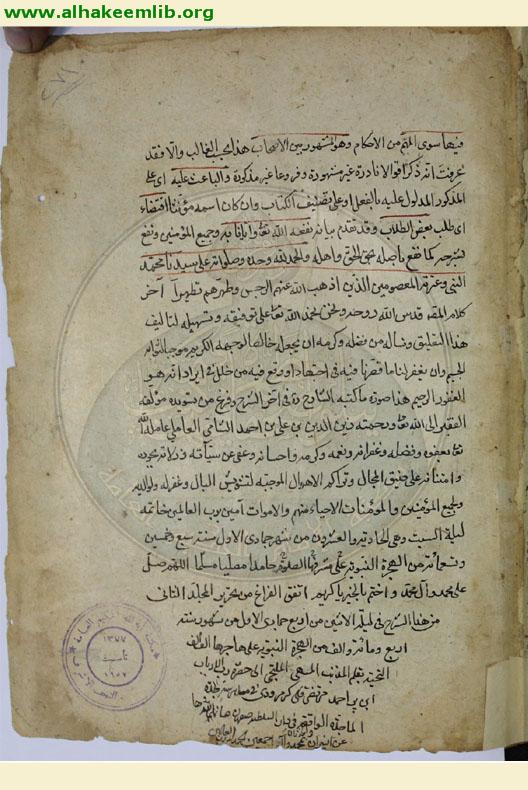 www.alhakeemlib.org
فيها سوى المهم من الاحكام وهو المشهور بين الاصحاب هذا بحسب الغالب والا فقد
عرفت انه ذكر اقوالا نادرة غير مشهورة وفروعا غير مذكورة والباعث عليه اى على
المذكور المدلول عليه بالفعل او على تصنيف الكتاب وان كان اسمه مؤنثا اقتضاء
اى طلب بعض الطلاب وقد تقدم بيانه نفعه الله تعا وايانا به وجميع المؤمنين ونفع
بشرحه كما نفع باصله بحق الحق واهله والحمد لله وحده وصلواته على سيدنا محمد
النبى وعترته المعصومين الذين اذهب الله عنهم الرجس وطهرهم تطهيرا آخر
كلام المصـ قدس الله روحه ونحن نحمد الله تعا على توفيقه وتسهيله لتاليف
هذا التعليق ونساله من فضله وكرمه ان يجعله خالصا لوجهه الكريم موجبا لثوابه
الجسيم وان يغفر لنا ما قصرنا فيه من اجتهاد او وقع فيه من خلل فى ايراد انه هو
الغفور الرحيم هذا صورة ما كتبه الشارح ره فى آخر الشرح وفرغ من تسويده مؤلفه
الفقير الى الله تعا ورحمته زين الدين بن على بن احمد الشامى العاملى عامله الله
تعا بعفوه وفضله وغفرانه ونعمه وكرمه واحسانه وعفى عن سيئاته وزلاته بجوده
وامتنانه على ضيق المجال وتراكم الاهوال الموجبة لتشويش البال وغفر له ولوالديه
ولجميع المؤمنين والمؤمنات الاحياء منهم والاموات آمين رب العالمين خاتمة
ليلة السبت وهى الحادية والعشرون من شهر جمادى الاول سنة سبع وخمسين
وتسعمائة من الهجرة النبوية على مشرفها الصلوة حامدا مصليا مسلما اللهم صل
على محمد وآل محمد واختم بالخير يا كريم اتفق الفراغ من تحرير المجلد الثانى
من هذا الشرح فى ليلة الاثنين من اربع جمادى الاول من شهور سنة
اربع ومائة والف من الهجرة النبوية على هاجرها الوف
التحية بقلم المذنب الملتجى الى حضرة رب الارباب
١٣٧٧
تأسيس
١٩٥٧